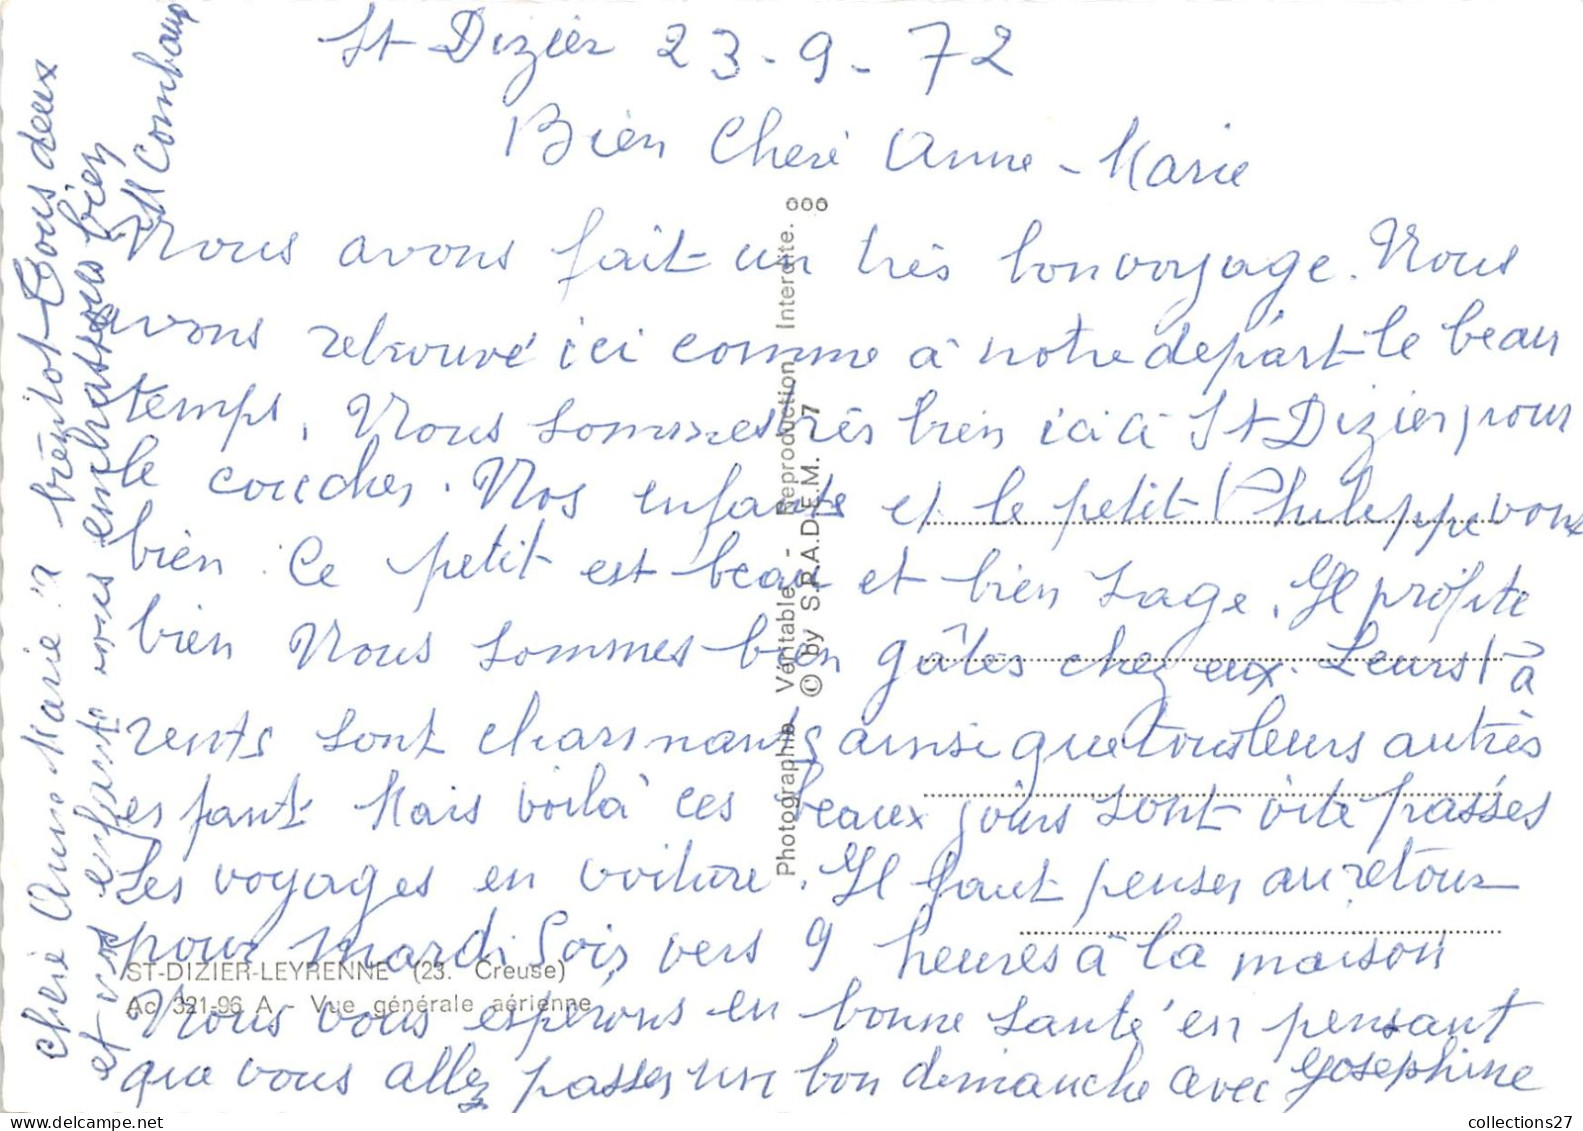 St Dizier 23-9-72
Bien Cheré Anne-Marie
Nous avons fait un très bon voyage. Nous
avons retrouvé ici comme à notre départ le beau
temps. Nous sommes très bien ici à St Dizier, pour
le coucher. Nos enfants et le petit Philippe vont
bien. Ce petit est beau et bien sage. Il profite
bien Nous sommes bien gâtés chez eux. Leurs
rents sont charmants ainsi que tous leurs autres
enfants Mais voilà ces beaux jours sont vite passés
Les voyages en voiture. Il faut penser au retour
pour mardi soir vers 9 heures à la maison
Nous vous espérons en bonne santé en pensant
que vous allez passer un bon dimanche avec Josephine
cheré Anne Marie à bientôt Tous deux
et vos enfants nous embrassons bien
ooo
Photographie Véritable - Reproduction Interdite.
© by S.P.A.D.E.M. 7
ST-DIZIER-LEYRENNE (23. Creuse)
Ac 321-96 A - Vue générale aérienne
collections27